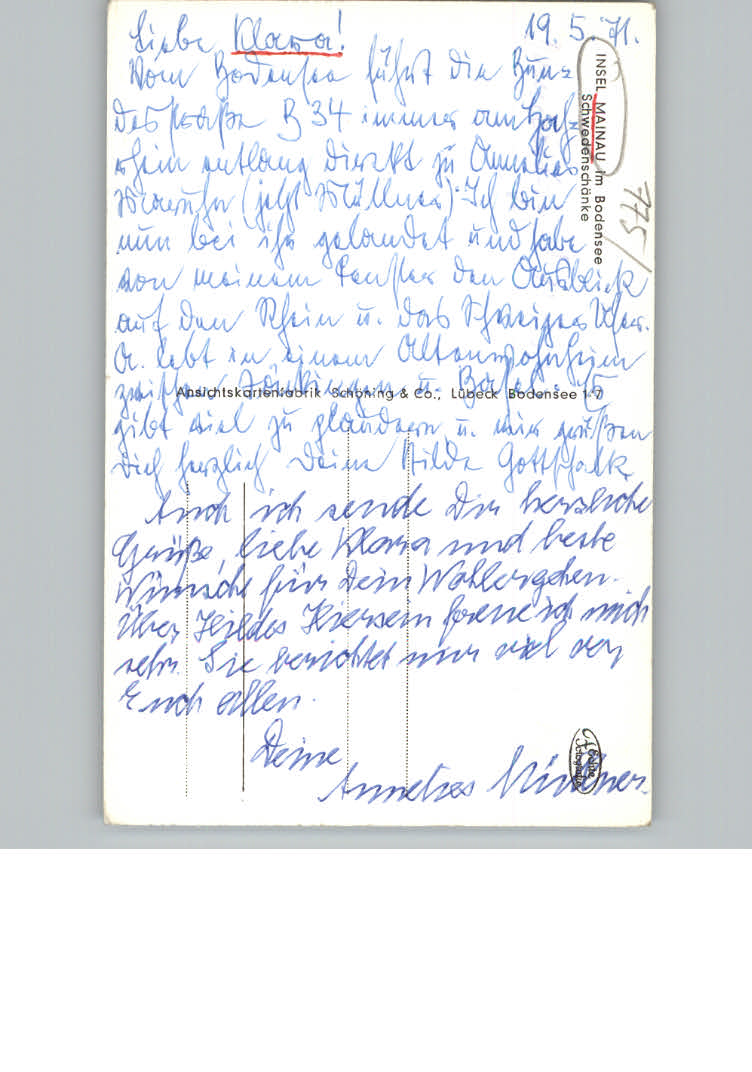 19. 5. 71.
Liebe Klara!
Vom Bodensee führt die Bun=
desstraße B 34 immer am Hoch=
rhein entlang direkt zu Annelies
(jetzt Müllner). Ich bin
nun bei ihr gelandet und habe
von meinem Fenster den Ausblick
auf den Rhein u. das Schweizer Ufer.
A. lebt in einem Altenwohnheim
zwischen Säckingen u. Basel. Es
gibt viel zu plaudern u. wir grüßen
Dich herzlich Deine Hilde Gottschalk
Auch ich sende Dir herzliche
Grüße, liebe Klara und beste
Wünsche für Dein Wohlergehen.
Über Hildes Hiersein freue ich mich
sehr. Sie berichtet mir viel von
Euch allen.
Deine
Annelies
INSEL MAINAU im Bodensee
Schwedenschänke
775/
Ansichtskartenfabrik Schöning & Co., Lübeck Bodensee 1 7